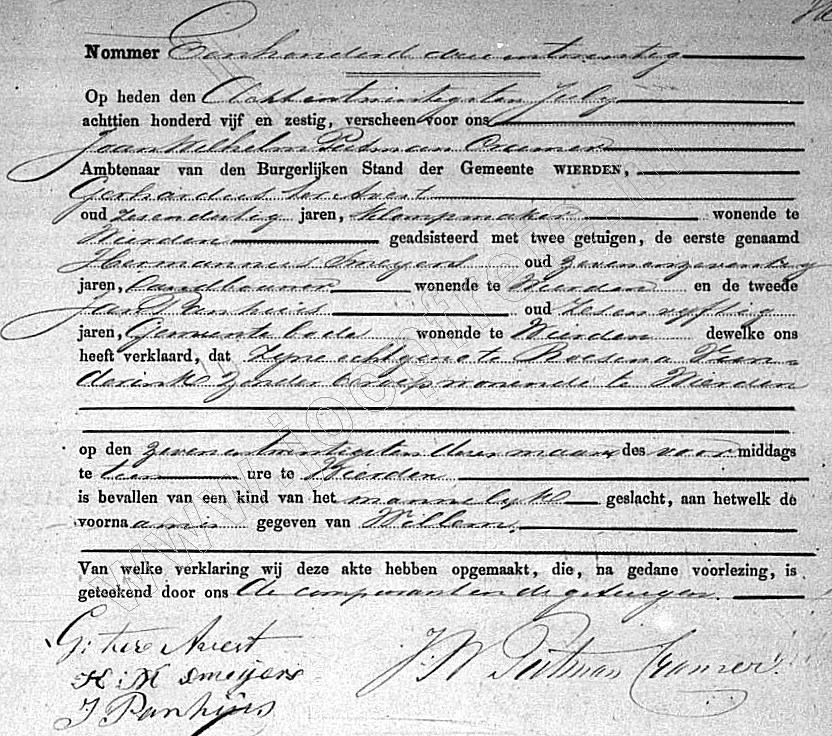 Nommer Eenhonderd drieentwintig
Op heden den Achtentwintigsten July
achttien honderd vijf en zestig, verscheen voor ons
Joan Wilhelm Putman Cramer
Ambtenaar van den Burgerlijken Stand der Gemeente WIERDEN,
Gerhardus ter Avest
oud zesendertig jaren, Klompmaker wonende te
Wierden geadsisteerd met twee getuigen, de eerste genaamd
Hermannus Smeyers oud zevenenzeventig
jaren, landbouwer wonende te Wierden en de tweede
Jan Panhuis oud zesenvyftig
jaren, Gemeentebode wonende te Wierden dewelke ons
heeft verklaard, dat Zyne echtgenoote
zonder beroep wonende te Wierden
op den zevenentwintigsten dezer maand des voor middags
te tien ure te Wierden
is bevallen van een kind van het mannelyk geslacht, aan hetwelk de
voornaam is gegeven van Willem,
Van welke verklaring wij deze akte hebben opgemaakt, die, na gedane voorlezing, is
geteekend door ons de comparant en de getuigen.
G: ter Avest
H: M Smeijers
J Panhuis
J: W Putman Cramer